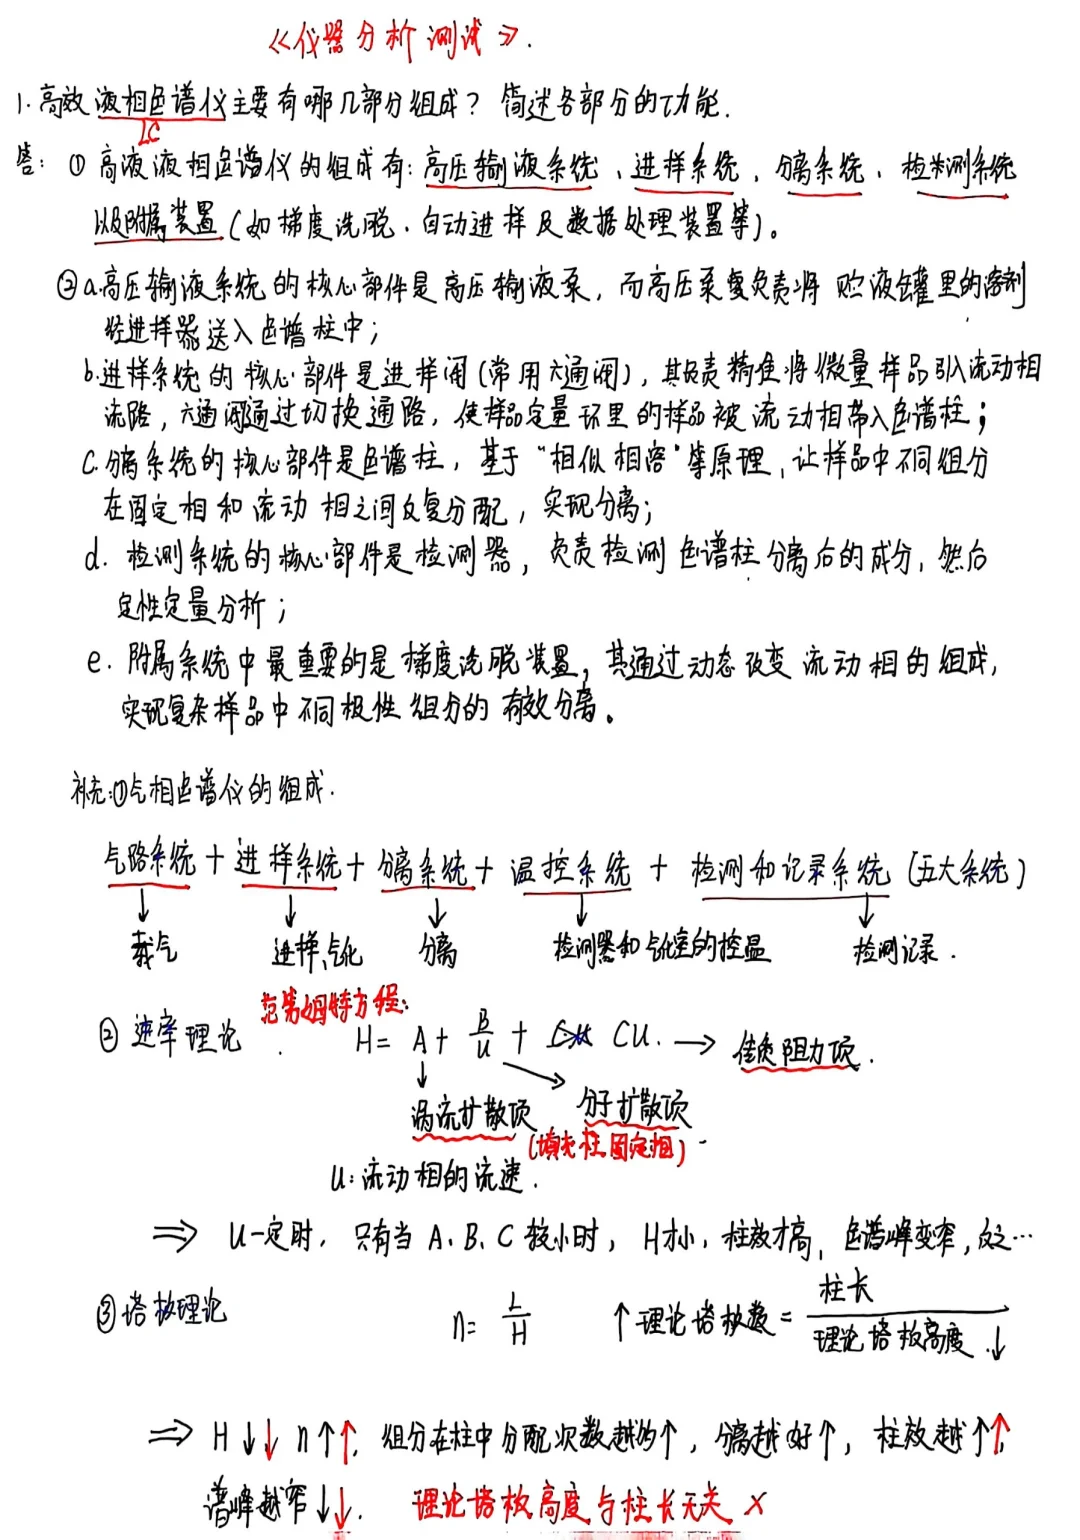 《仪器分析测试》.
1. 高效液相色谱仪主要有哪几部分组成？简述各部分的功能.
LC
答: ① 高液液相色谱仪的组成有: 高压输液系统、进样系统、分离系统、检测系统
以及附属装置(如梯度洗脱.自动进样及数据处理装置等)。
② a.高压输液系统的核心部件是高压输液泵, 而高压泵负责将 贮液罐里的溶剂
经进样器送入色谱柱中;
b.进样系统的核心部件是进样阀(常用六通阀), 其负责精准将微量样品引入流动相
流路, 六通阀通过切换通路, 使样品定量环里的样品被流动相带入色谱柱;
C. 分离系统的核心部件是色谱柱, 基于“相似相溶”等原理, 让样品中不同组分
在固定相和流动相之间反复分配, 实现分离;
d. 检测系统的核心部件是检测器, 负责检测色谱柱分离后的成分, 然后
定性定量分析;
e. 附属系统中最重要的是梯度洗脱装置, 其通过动态改变流动相的组成,
实现复杂样品中不同极性组分的有效分离。
补充:①气相色谱仪的组成.
气路系统 + 进样系统 + 分离系统 + 温控系统 + 检测和记录系统 (五大系统)
↓ ↓ ↓ ↓ ↓
载气 进样、气化 分离 检测器和气化室的控温 检测记录.
范第姆特方程:
② 速率理论 H= A+ B/U + CU. → 传质阻力项.
涡流扩散项 分子扩散项
(填充柱固定相)
U: 流动相的流速.
⇒ U一定时, 只有当 A、B、C 较小时, H才小, 柱效才高, 色谱峰变窄, 反之…
③塔板理论 n= L/H ↑理论塔板数 = 柱长/理论塔板高度↓
⇒ H↓↓ n↑↑, 组分在柱中分配次数越的↑, 分离越好↑, 柱效越↑↑,
谱峰越窄↓↓. 理论塔板高度与柱长无关 ×